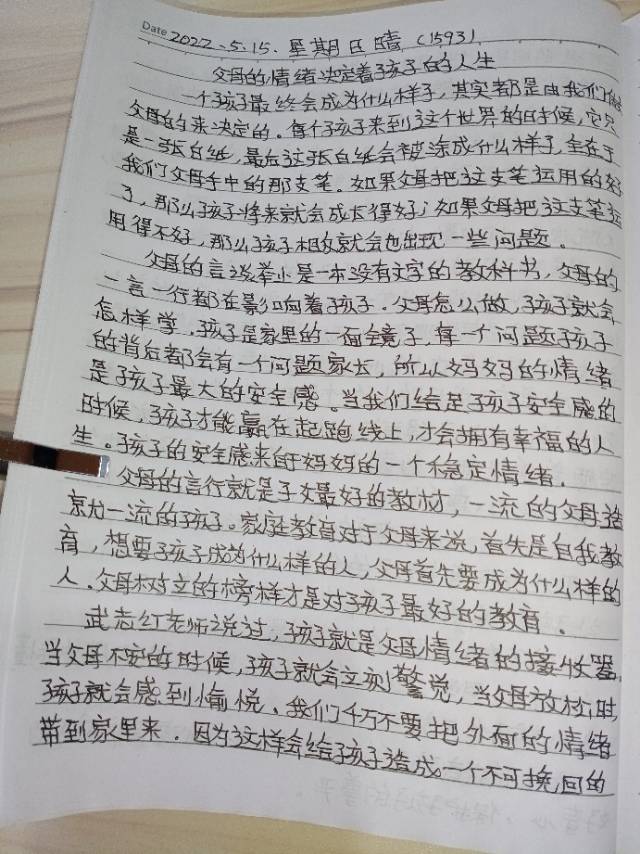 Date 2022.5.15. 星期日晴 (1593)
父母的情绪决定着孩子的人生
一个孩子最终会成为什么样子,其实都是由我们做
父母的来决定的。每个孩子来到这个世界的时候,它只
是一张白纸,最后这张白纸会被涂成什么样子,全在于
我们父母手中的那支笔。如果父母把这支笔运用的好
了,那么孩子将来就会成长得好;如果父母把这支笔运
用得不好,那么孩子相故就会也出现一些问题。
父母的言谈举止是一本没有文字的教科书,父母的
一言一行都在影响着孩子.父母怎么做,孩子就会
怎样学.孩子是家里的一面镜子,每一个问题孩子
的背后都会有一个问题家长,所以妈妈的情绪
是孩子最大的安全感。当我们给足孩子安全感的
时候,孩子才能赢在起跑线上,才会拥有幸福的人
生。孩子的安全感来自于妈妈的一个稳定情绪.
父母的言行就是子女最好的教材,一流的父母造
就一流的孩子。家庭教育对于父母来说,首先是自我教
育,想要孩子成为什么样的人,父母首先要成为什么样的
人.父母树立的榜样才是对孩子最好的教育.
武志红老师说过,孩子就是父母情绪的接收器.
当父母不安的时候,孩子就会立刻警觉,当父母放松时,
孩子就会感到愉悦.我们千万不要把外面的情绪
带到家里来.因为这样会给孩子造成一个不可挽回的